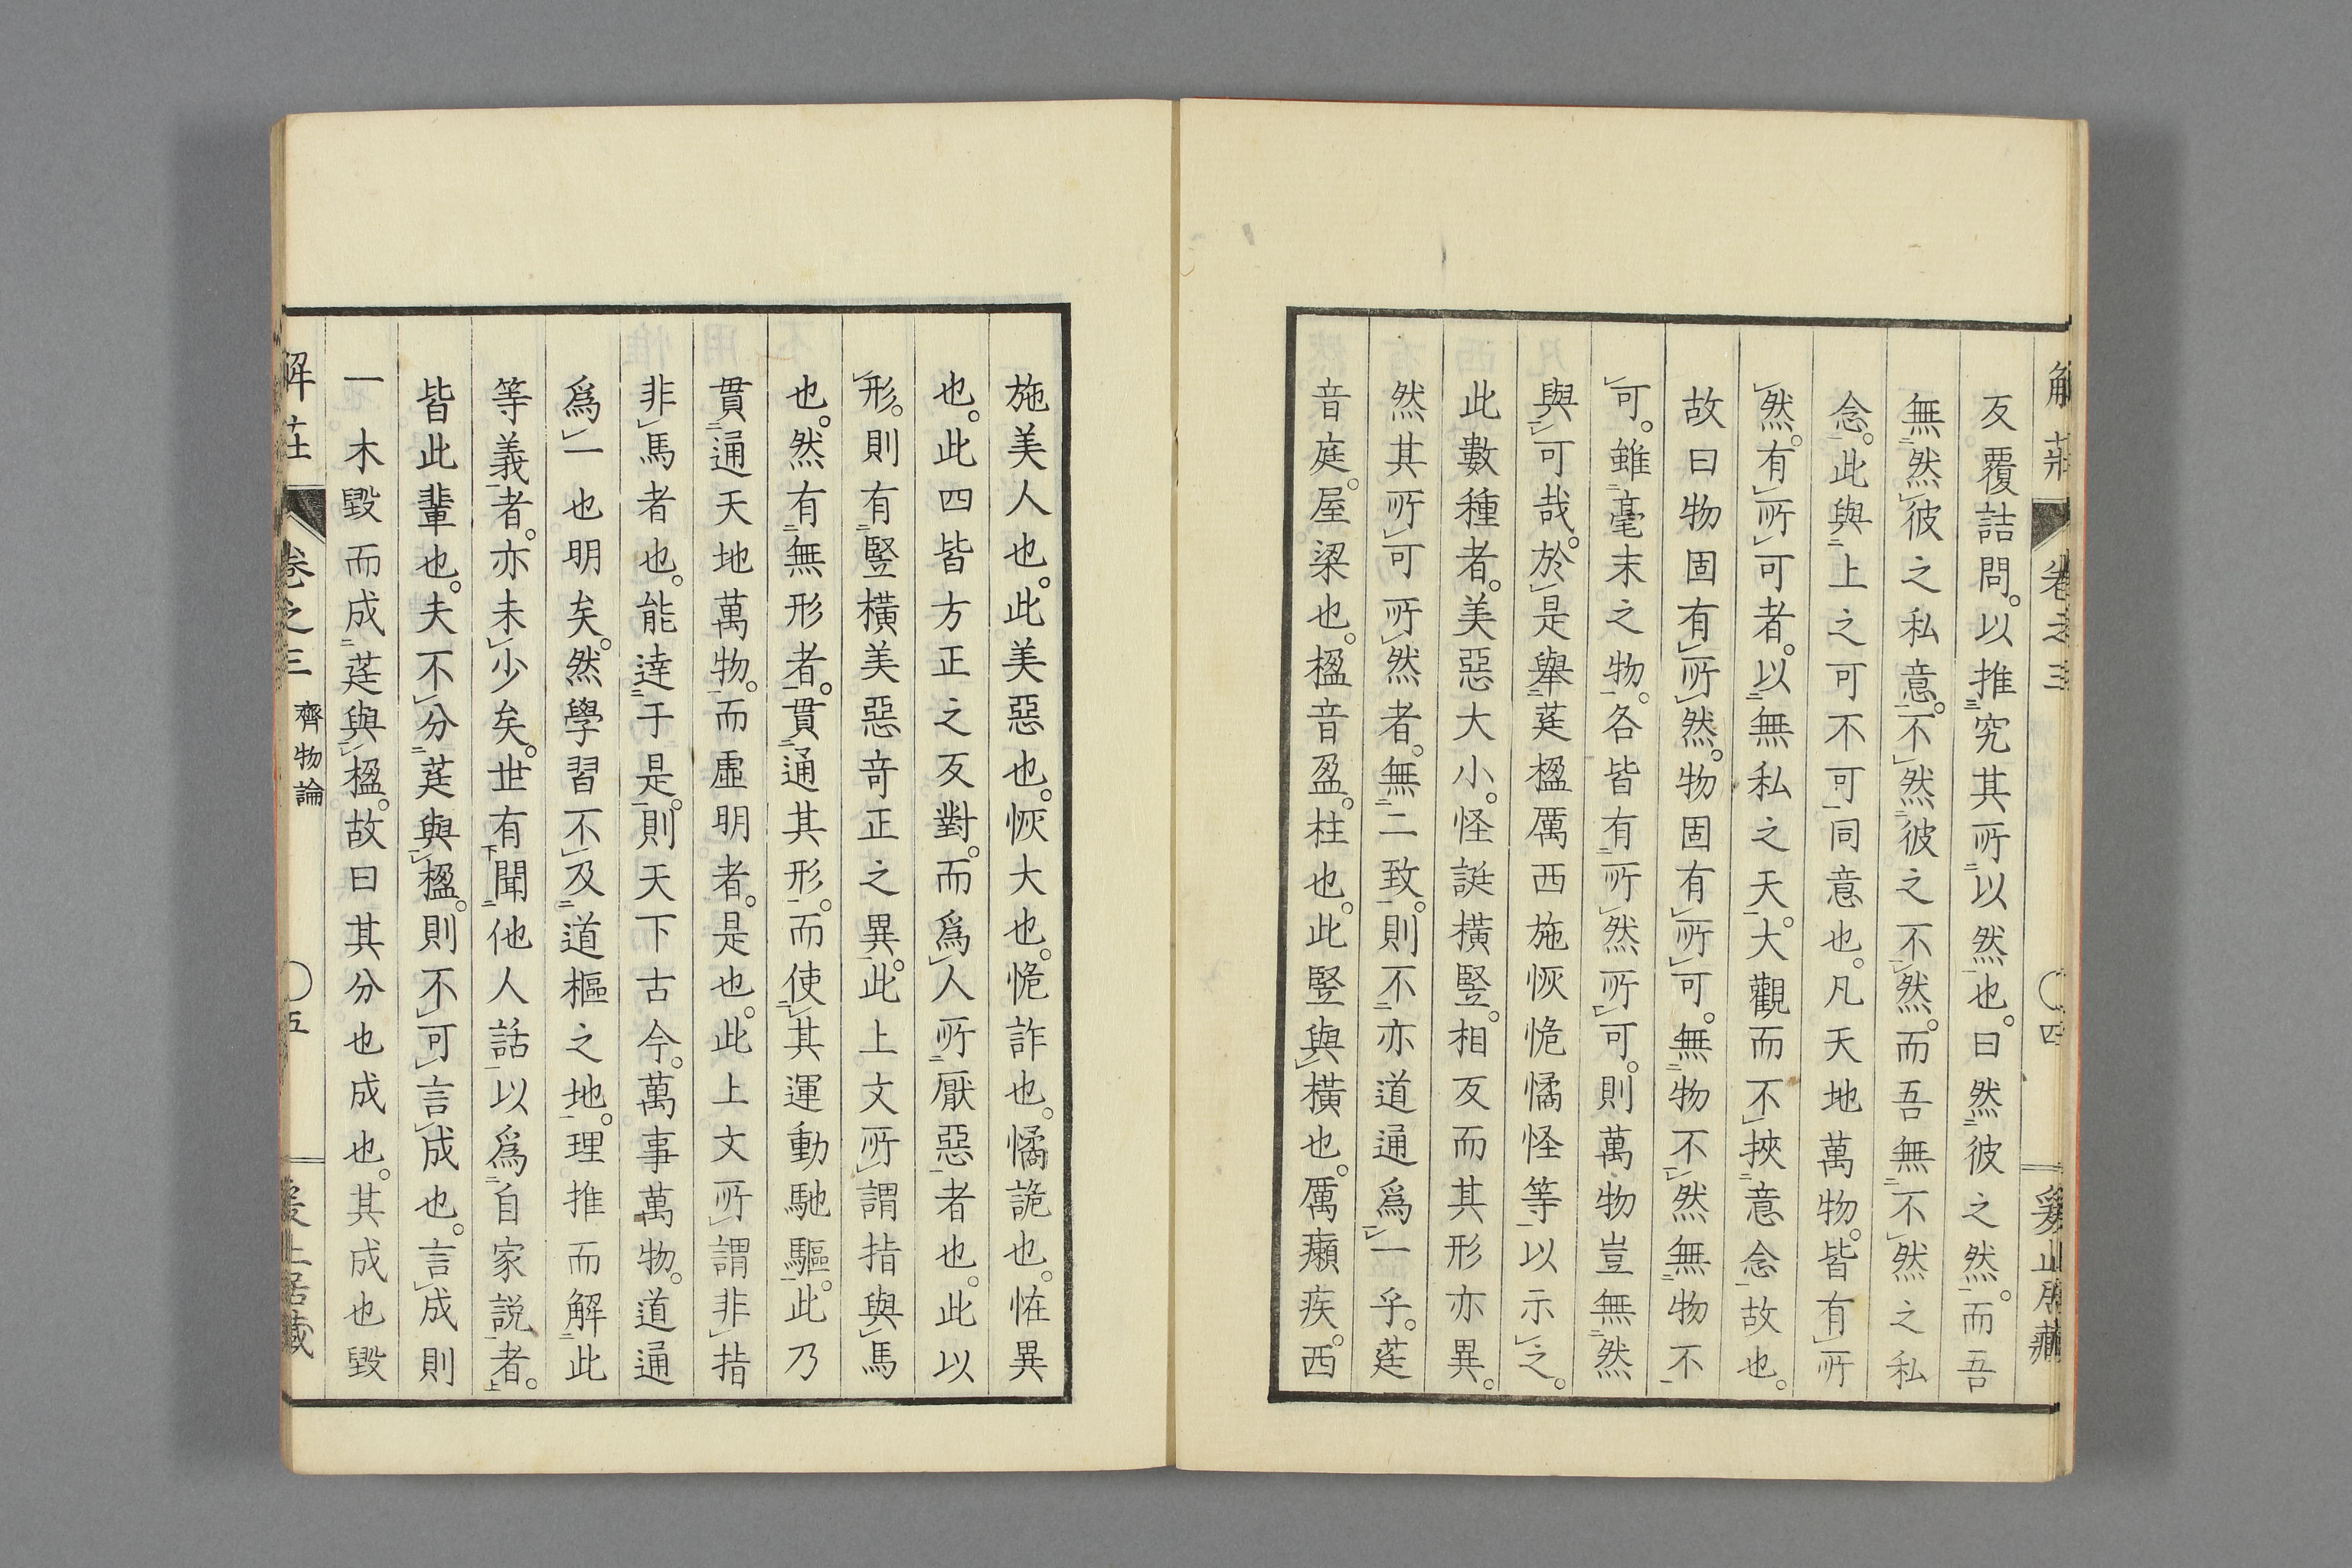 反覆詰問。以推究其所以然也。曰然彼之然。而吾
無然彼之私意。不然彼之不然。而吾無不然之私
念。此與上之可不可同意也。凡天地萬物。皆有所
然。有所可者。以無私之天。大觀而不挾意念故也。
故曰物固有所然。物固有所可。無物不然無物不
可。雖毫末之物。各皆有所然所可。則萬物豈無然
與可哉。於是舉莛楹厲西施恢恑憰怪等以示之。
此數種者。美惡大小。怪誕橫竪。相反而其形亦異。
然其所可所然者。無二致。則不亦道通爲一乎。莛
音庭。屋梁也。楹音盈。柱也。此竪與橫也。厲癩疾。西
解莊 卷之三 〇四
施美人也。此美惡也。恢大也。恑詐也。憰詭也。恠異
也。此四皆方正之反對。而爲人所厭惡者也。此以
形。則有竪橫美惡奇正之異。此上文所謂指與馬
也。然有無形者。貫通其形。而使其運動馳驅。此乃
貫通天地萬物。而虛明者。是也。此上文所謂非指
非馬者也。能達于是。則天下古今。萬事萬物。道通
爲一也明矣。然學習不及道樞之地。理推而解此
等義者。亦未少矣。世有聞他人話以爲自家說者。
皆此輩也。夫不分莛與楹。則不可言成也。言成則
一木毀而成莛與楹。故曰其分也成也。其成也毀
解莊 卷之三 齊物論 〇五